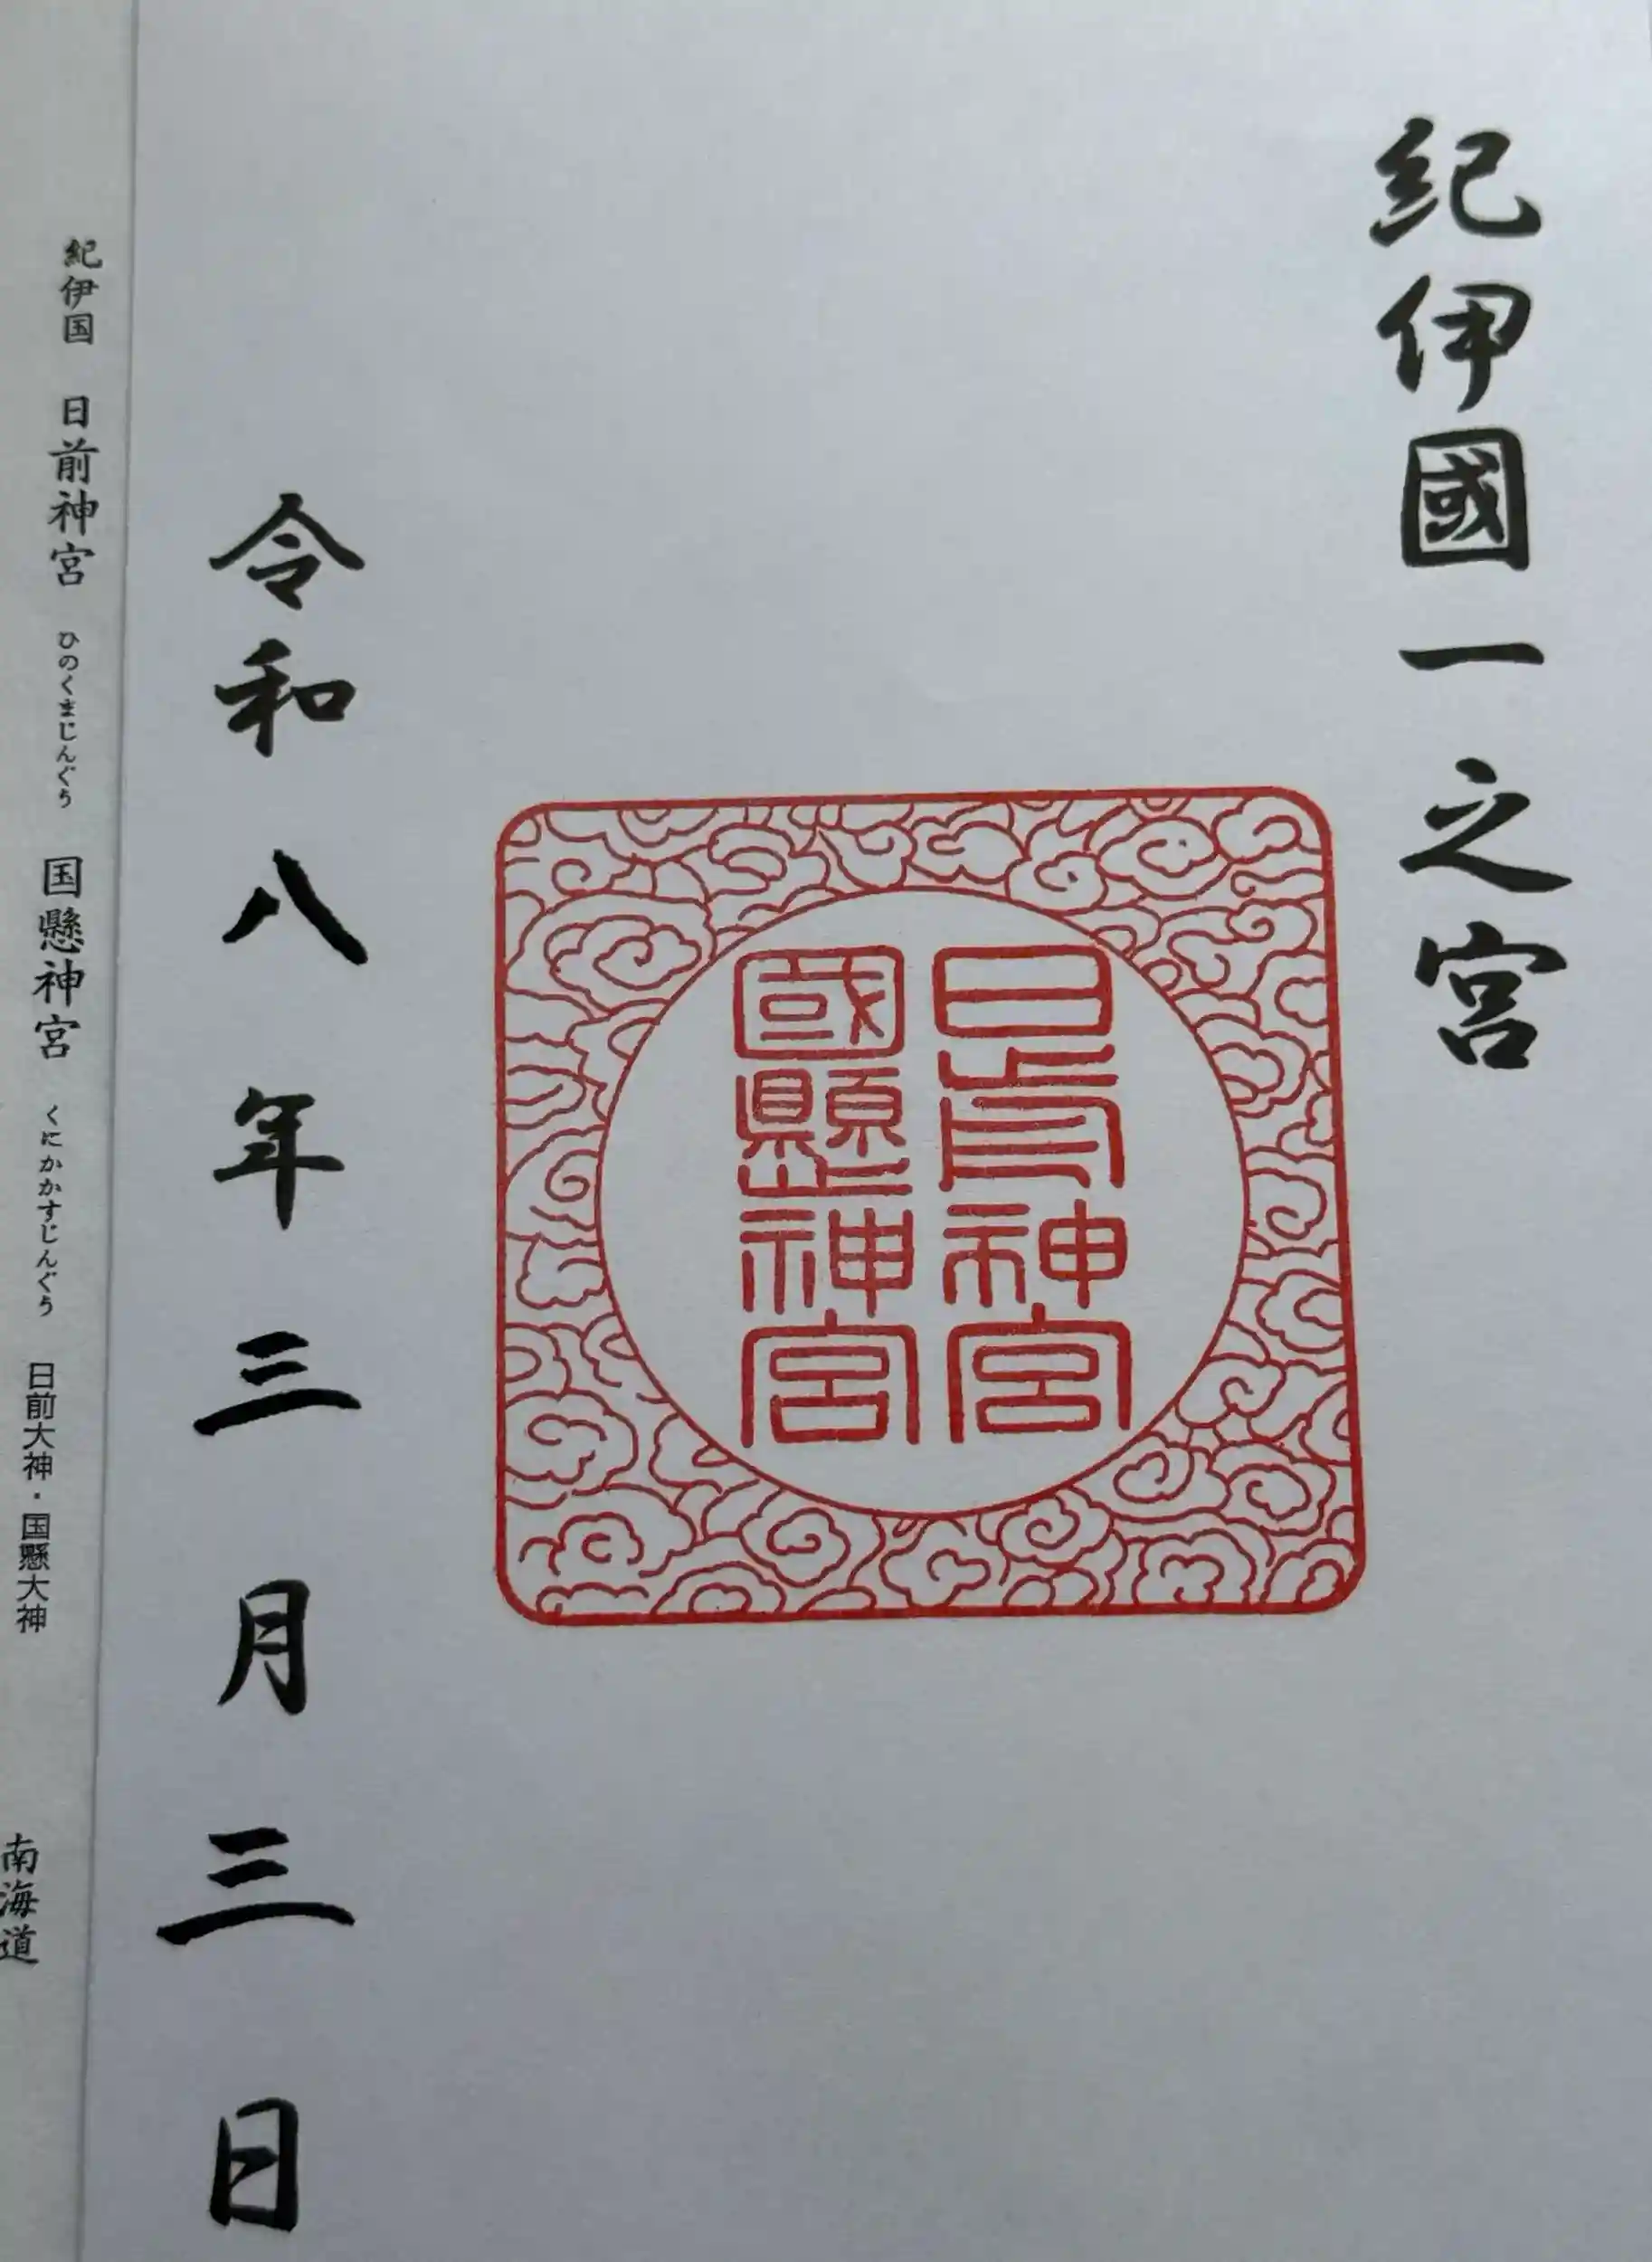 紀伊國一之宮
日前神宮
國懸神宮
令和八年三月三日
紀伊国 日前神宮 ひのくまじんぐう 国懸神宮 くにかかすじんぐう 日前大神・国懸大神
南海道